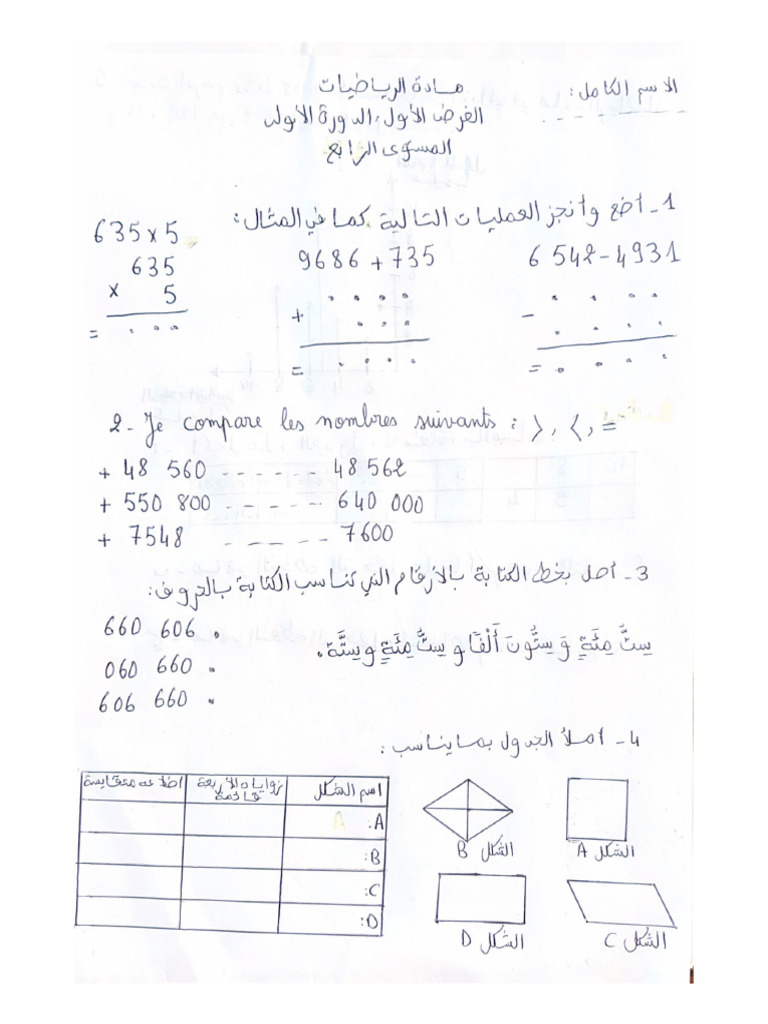 الاسم الكامل:
- - - - - - - -
مادة الرياضيات
الفرض الأول، الدورة الأولى
المستوى الرابع
1 - أضع وأنجز العمليات التالية كما في المثال:
635 x 5
635
x 5
= . . .
9686 + 735
. . . .
+ . . .
= . . . .
6 548 - 4931
. . . .
- . . . .
= . . . .
2 - Je compare les nombres suivants : >, <, =
+ 48 560 - - - - - - 48 562
+ 550 800 - - - - - - 640 000
+ 7548 - - - - - 7600
3 - أصل بخط الكتابة بالأرقام التي تناسب الكتابة بالحروف:
660 606 .
060 660 .
606 660 .
سِتُّ مِئَةٍ وَسِتُّونَ أَلْفًا وسِتُّ مِئَةٍ وسِتَّة .
4 - أملأ الجدول بما يناسب:
اسم الشكل
زواياه الأربعة قائمة
أضلاعه متقايسة
A:
B:
C:
D:
الشكل A
الشكل B
الشكل C
الشكل D